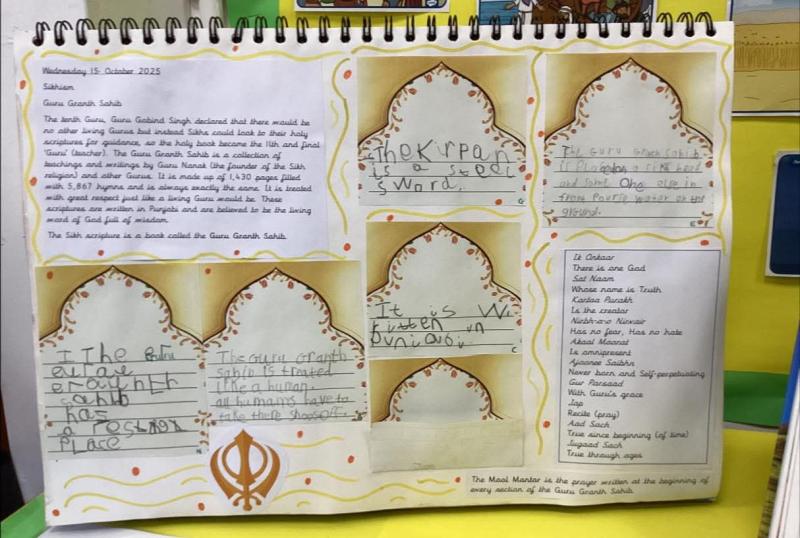 Wednesday 15 October 2025
Sikhism
Guru Granth Sahib
The tenth Guru, Guru Gobind Singh declared that there would be
no other living Gurus but instead Sikhs could look to their holy
scriptures for guidance, so the holy book became the 11th and final
'Guru' (teacher). The Guru Granth Sahib is a collection of
teachings and writings by Guru Nanak (the founder of the Sikh
religion) and other Gurus. It is made up of 1,430 pages filled
with 5,867 hymns and is always exactly the same. It is treated
with great respect just like a living Guru would be. These
scriptures are written in Punjabi and are believed to be the living
word of God full of wisdom.
The Sikh scripture is a book called the Guru Granth Sahib.
The Kirpan
is a steel
sword.
The Guru Granth Sahib
is
and some One else in
front water on the
ground.
I The
sahib
has
a
PLace
The Guru Granth
sahib is treated
like a human.
all humans have to
take there shoos off.
It is W
ritten in
Punjabi.
Ik Onkaar
There is one God
Sat Naam
Whose name is Truth
Kartaa Purakh
Is the creator
Nirbh-a-o Nirvair
Has no fear, Has no hate
Akaal Moorat
Is omnipresent
Ajoonee Saibhn
Never born and Self-perpetuating
Gur Parsaad
With Guru's grace
Jap
Recite (pray)
Aad Sach
True since beginning (of time)
Jugaad Sach
True through ages
The Mool Mantar is the prayer written at the beginning of
every section of the Guru Granth Sahib.